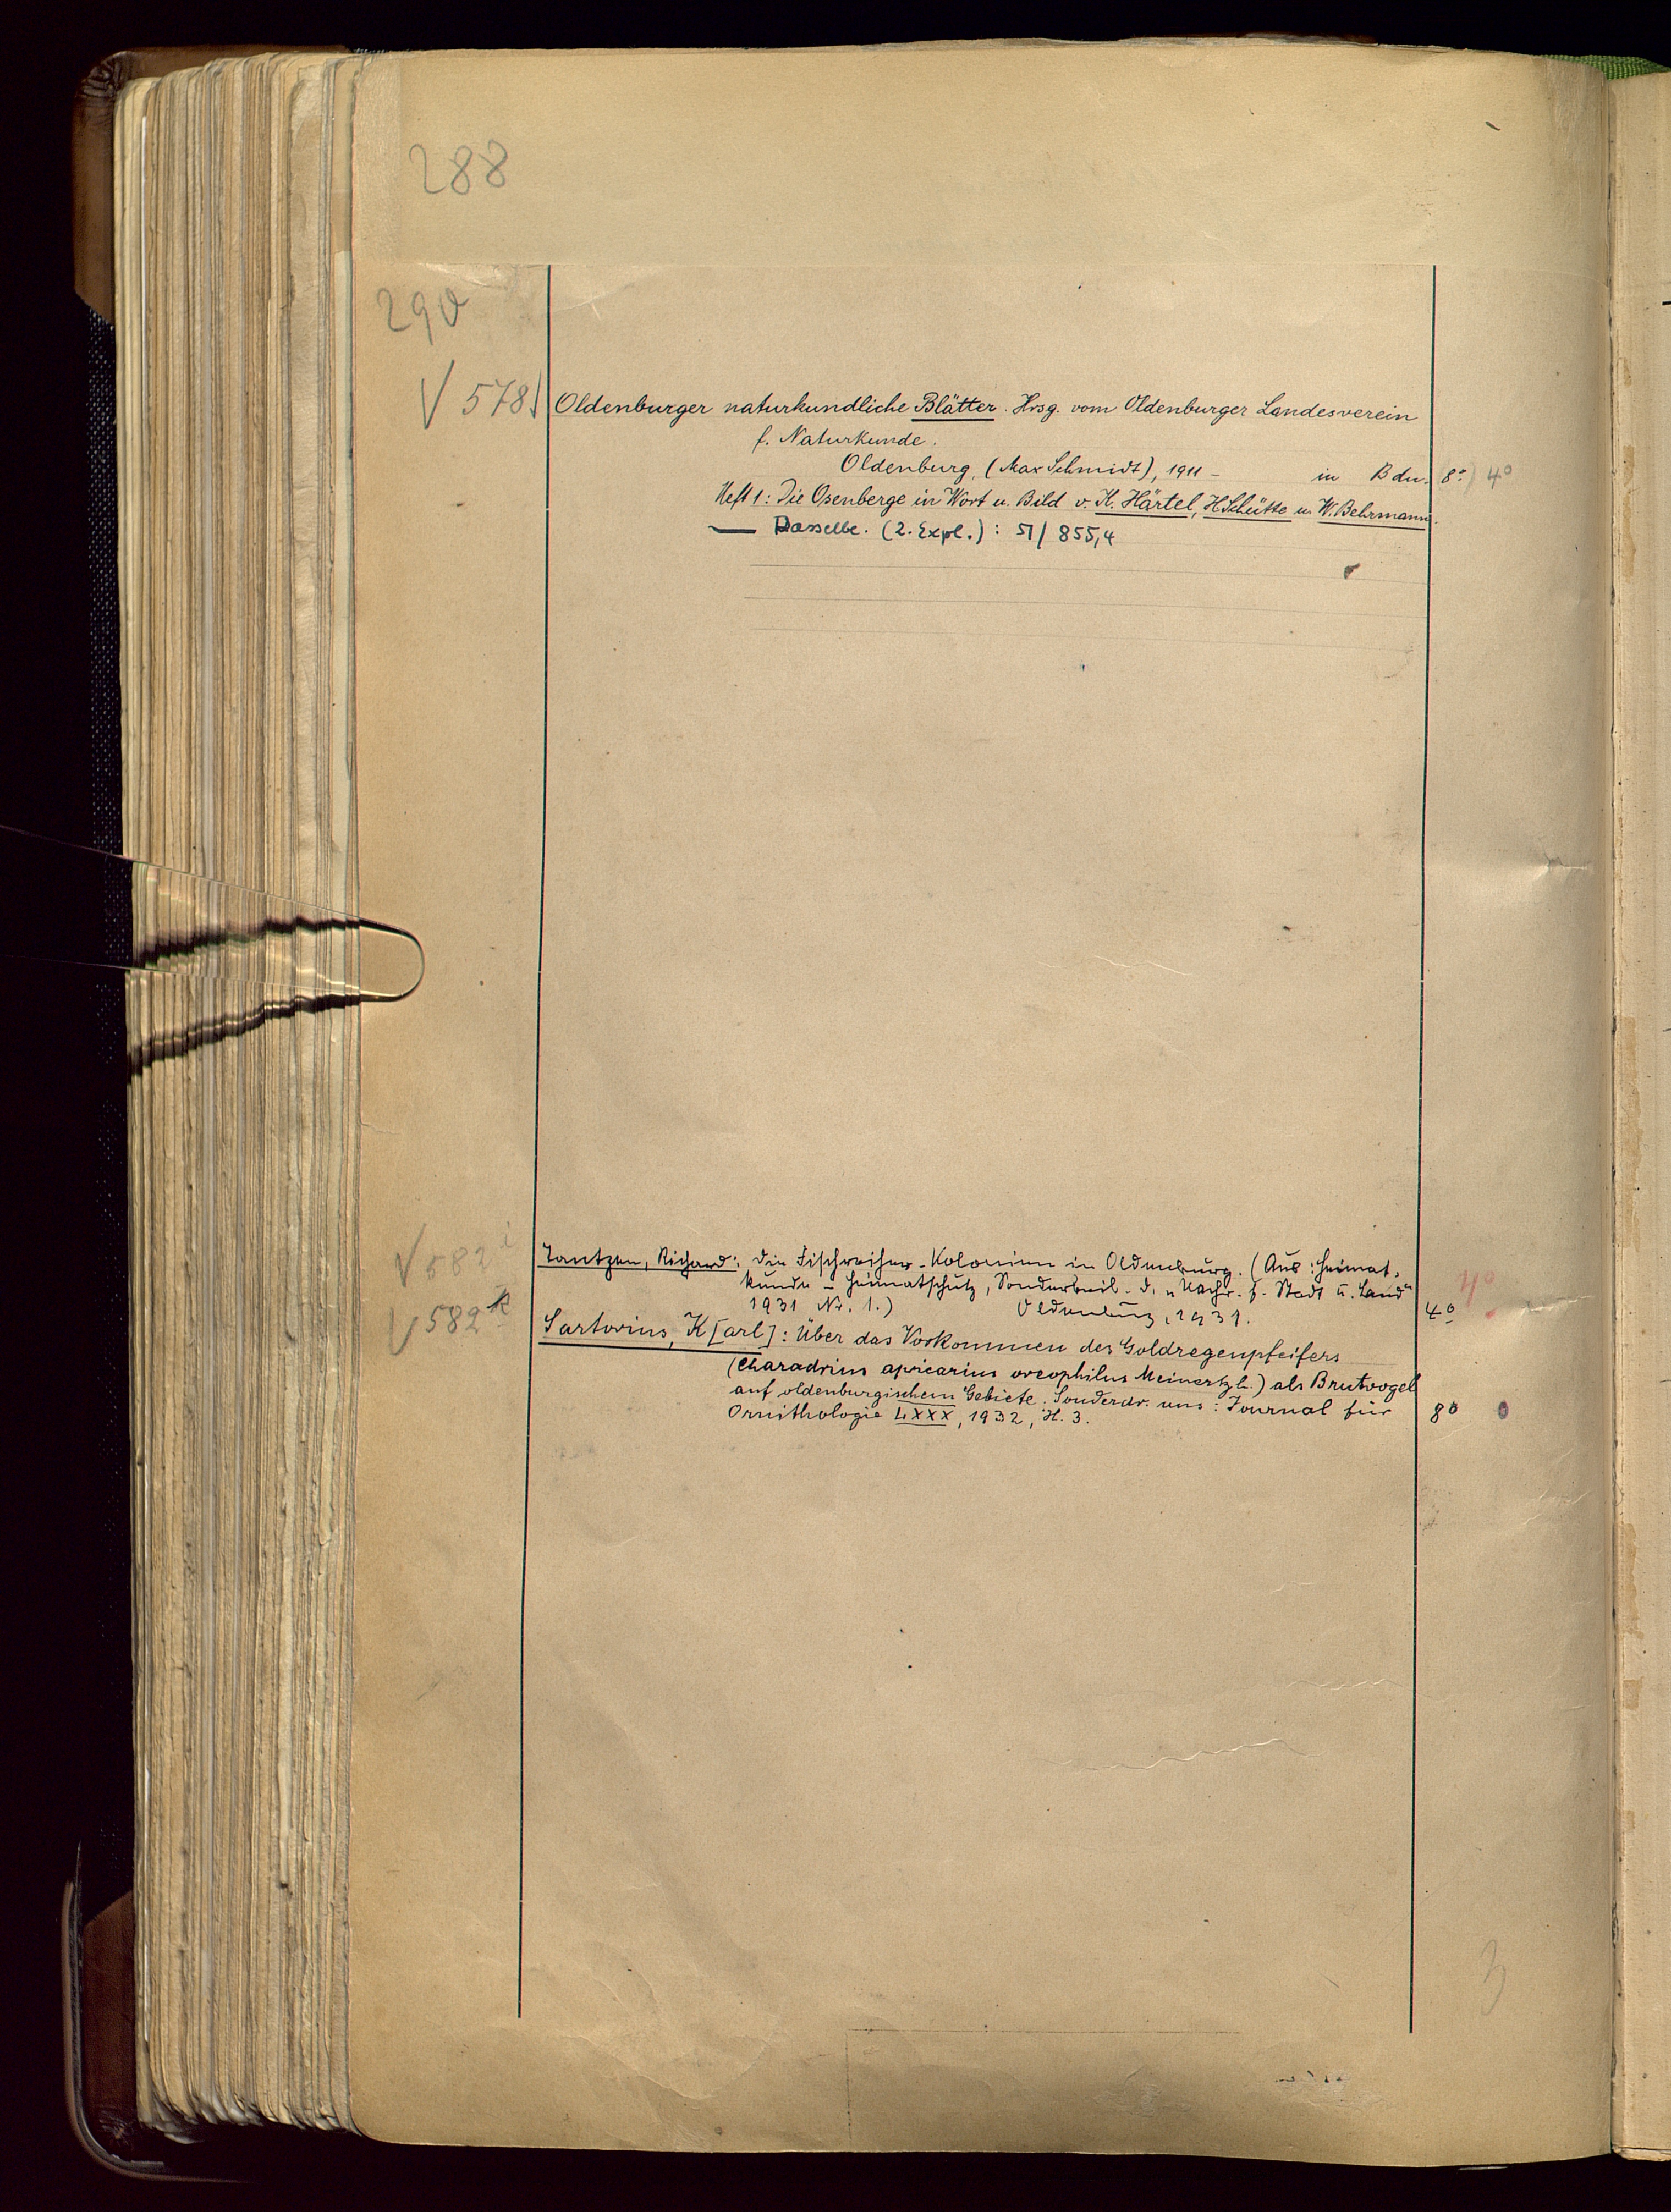 288
290
√ 578) Oldenburger naturkundliche Blätter. Hrsg. vom Oldenburger Landesverein
f. Naturkunde.
Oldenburg, (Max Schmidt), 1911 – in Bdn. 8° 4°
Heft 1: Die Osenberge in Wort u. Bild v. K. Härtel, H. Schütte u. W. Behrmann.
— Dasselbe. (2. Expl.): 51/855,4
√ 582 i Tantzen, Richard: Die Fischreiher-Kolonien in Oldenburg. (Aus: Heimat-
kunde – Heimatschutz, Sonderbeil. d. „Nachr. f. Stadt u. Land" 4°
1931 Nr. 1.) Oldenburg, 1931. 4°
√ 582 k Sartorius, K[arl]: Über das Vorkommen des Goldregenpfeifers
(Charadrius apricarius oreophilus Meinertzh.) als Brutvogel
auf oldenburgischem Gebiete. Sonderdr. aus: Journal für
Ornithologie LXXX, 1932, H. 3. 8°
3